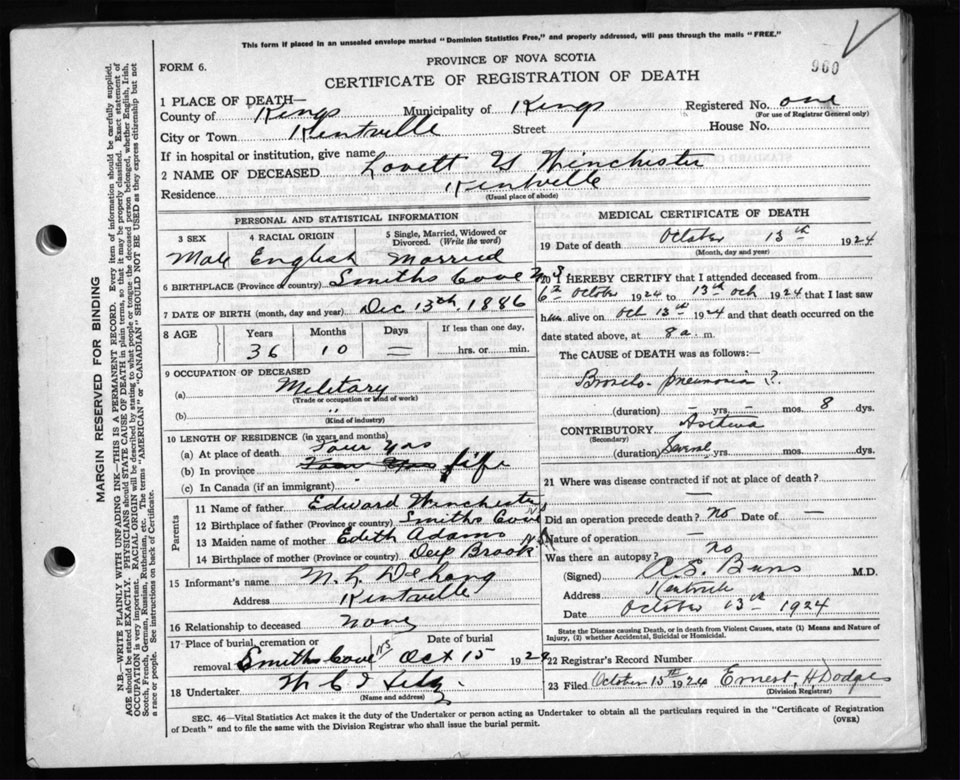 This form if placed in an unsealed envelope marked "Dominion Statistics Free," and properly addressed, will pass through the mails "FREE."
960
FORM 6.
PROVINCE OF NOVA SCOTIA
CERTIFICATE OF REGISTRATION OF DEATH
1 PLACE OF DEATH—
County of Kings Municipality of Kings Registered No. one
(For use of Registrar General only)
City or Town Kentville Street House No.
If in hospital or institution, give name
2 NAME OF DECEASED Lovett Winchester
Residence Kentville
(Usual place of abode)
PERSONAL AND STATISTICAL INFORMATION
3 SEX 4 RACIAL ORIGIN 5 Single, Married, Widowed or Divorced. (Write the word)
Male English Married
6 BIRTHPLACE (Province or country) Smiths Cove N S
7 DATE OF BIRTH (month, day and year) Dec 13th, 1886
8 AGE Years Months Days If less than one day,
36 10 = hrs. or min.
9 OCCUPATION OF DECEASED
(a) Military
(Trade or occupation or kind of work)
(b) "
(Kind of industry)
10 LENGTH OF RESIDENCE (in years and months)
(a) At place of death Four yrs
(b) In province life
(c) In Canada (if an immigrant)
Parents
11 Name of father Edward Winchester
12 Birthplace of father (Province or country) Smiths Cove N S
13 Maiden name of mother Edith Adams
14 Birthplace of mother (Province or country) Deep Brook N S
15 Informant's name
Address Kentville
16 Relationship to deceased None
17 Place of burial, cremation or removal Smiths Cove NS Date of burial Oct 15 1924
18 Undertaker
(Name and address)
MEDICAL CERTIFICATE OF DEATH
19 Date of death October 13th 1924
(Month, day and year)
20 I HEREBY CERTIFY that I attended deceased from
6th October 1924 to 13th Oct 1924 that I last saw
him alive on Oct 13th 1924 and that death occurred on the
date stated above, at 8 a. m.
The CAUSE of DEATH was as follows:
Broncho-pneumonia ?
(duration) – yrs. – mos. 8 dys.
CONTRIBUTORY Asthma
(Secondary)
(duration) Several yrs. mos. dys.
21 Where was disease contracted if not at place of death?
—
Did an operation precede death? No Date of —
Nature of operation —
Was there an autopsy? no
(Signed) A.S. Burns M.D.
Address Kentville
Date October 13th 1924
State the Disease causing Death, or in death from Violent Causes, state (1) Means and Nature of Injury, (2) whether Accidental, Suicidal or Homicidal.
22 Registrar's Record Number
23 Filed October 15th 1924 Ernest H Dodge
(Division Registrar)
SEC. 46—Vital Statistics Act makes it the duty of the Undertaker or person acting as Undertaker to obtain all the particulars required in the "Certificate of Registration of Death" and to file the same with the Division Registrar who shall issue the burial permit.
(OVER)
MARGIN RESERVED FOR BINDING
N.B.—WRITE PLAINLY WITH UNFADING INK—THIS IS A PERMANENT RECORD. Every item of information should be carefully supplied.
AGE should be stated EXACTLY. PHYSICIANS should STATE CAUSE OF DEATH in plain terms, so that it may be properly classified. Exact statement of
OCCUPATION is very important. RACIAL ORIGIN will be described by stating to what people or tongue the deceased person belonged, whether English, Irish,
Scotch, French, German, Russian, Ruthenian, etc. The terms "AMERICAN" or "CANADIAN" SHOULD NOT BE USED as they express citizenship but not
a race or people. See instructions on back of Certificate.